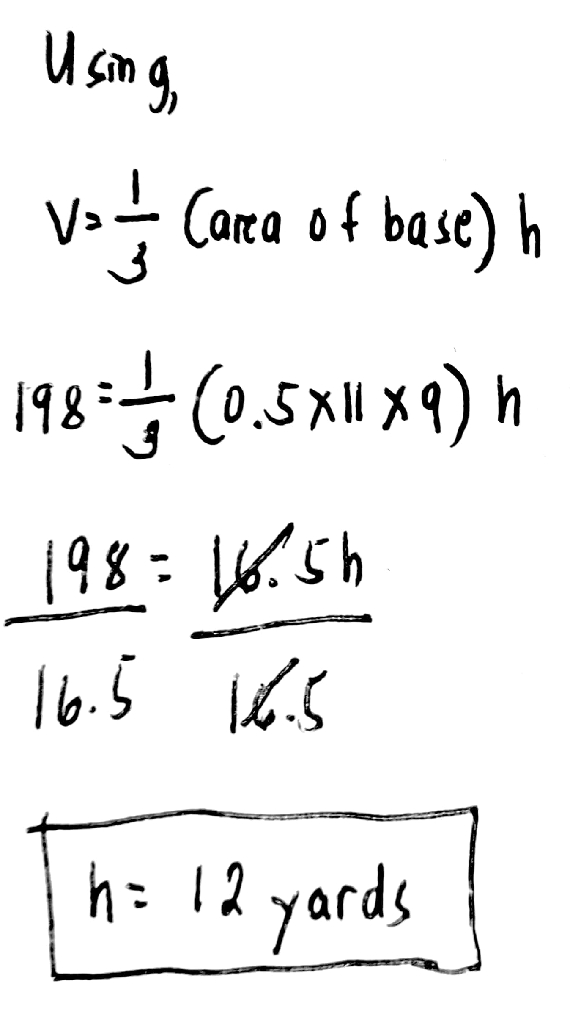 Using,
V = 1/3 (area of base) h
198 = 1/3 (0.5 x 11 x 9) h
198 = 16.5h
16.5 16.5
h = 12 yards